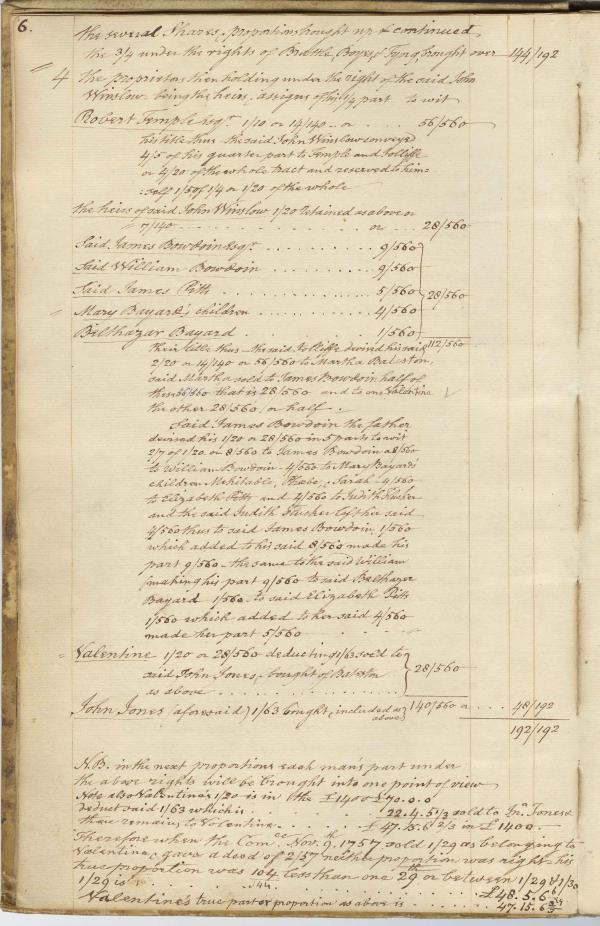 6.
the several Shares & proportions bought up & continued
the 3/4 under the rights of Brattle, Boyes, & Tyng, brought over 144/192
4 the proprietors then holding under the right of the said John
Winslow being the heirs & assigns of his 1/4 part to wit
Robert Temple esqr. 1/10 or 14/140 or . . . . 56/560
his title thus the said John Winslow conveyed
4/5 of his quarter part to Temple and Jolliffe
or 4/20 of the whole tract and reserved to him=
:self 1/5 of 1/4 or 1/20 of the whole
the heirs of said John Winslow 1/20 retained as above or
7/140 . . . . . . or . . . 28/560
Said James Bowdoin esqr. . . . . . . . . . 9/560
Said William Bowdoin . . . . . . . . . 9/560
Said James Pitts . . . . . . . . . . . 5/560 28/560
Mary Bayard's children . . . . . . . 4/560
Belthazar Bayard . . . . . . . . . 1/560
their title thus the said Jolliffe devised his said 112/560
2/20 or 14/140 or 56/560 to Martha Balston,
said Martha sold to James Bowdoin half of
these 56/560 that is 28/560 and to one Valentine
the other 28/560, or half.
Said James Bowdoin the father
devised his 1/20 or 28/560 in 5 parts to wit
2/7 of 1/20 or 8/560 to James Bowdoin & 8/560
to William Bowdoin - 4/560 to Mary Bayard's
children Mehitable, Phæbe, & Sarah - 4/560
to Elizabeth Pitts and 4/560 to Judith Flucker
and the said Judith Flucker left her said
4/560 thus to said James Bowdoin 1/560
which added to his said 8/560 made his
part 9/560 - the same to the said William
(making his part 9/560 to said Belthazar
Bayard 1/560 - to said Elizabeth Pitts
1/560 which added to her said 4/560
made her part 5/560
Valentine 1/20 or 28/560 deducting 1/63 sold to
said John Jones, bought of Balston 28/560
as above . . . . . . . . . .
John Jones (aforesaid) 1/63 bought, (included as above) 140/560 or . . . . 48/192
192/192
N.B. in the next proportions each man's part under
the above rights will be brought into one point of view
Note also Valentine's 1/20 is in the £1400 £70.0.0
deduct said 1/63 which is . . . . 22.4.5 1/3 sold to Jn. Jones &
there remains to Valentine . . . . £47.15.6 2/3 in £1400.
Therefore when the Comee. Novr. 9th. 1757 sold 1/29 as belonging to
Valentine & gave a deed of 2/57 neither proportion was right - his
true proportion was 10 less than one 29th or between 1/29 & 1/30
1/29 is . . . . . . £48.5.6
Valentine's true part or proportion as above is . . . . . 47.15.6 2/3